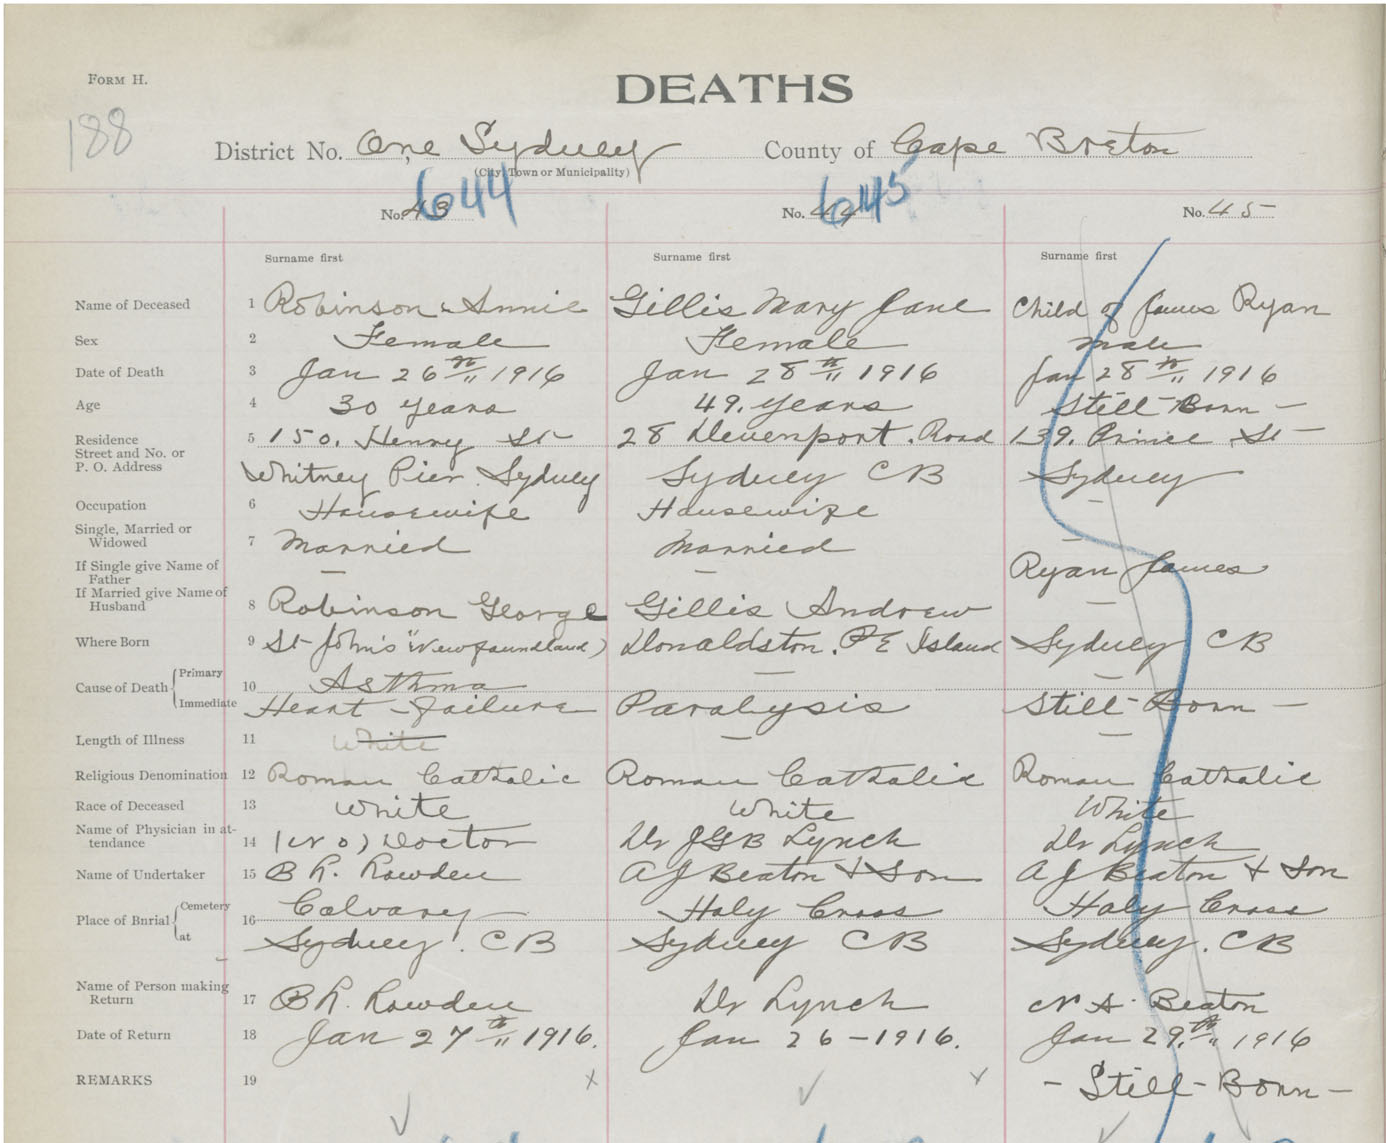 FORM H.
DEATHS
188
District No. One Sydney County of Cape Breton
(City, Town or Municipality)
644 645
No. 43 No. 44 No. 45
Surname first Surname first Surname first
Name of Deceased 1 Robinson Annie Gillis Mary Jane Child of James Ryan
Sex 2 Female Female male
Date of Death 3 Jan 26th 1916 Jan 28th 1916 Jan 28th 1916
Age 4 30 years 49. years Still-Born -
Residence 5 150. Henry St 28 Devenport. Road 139. Prince St
Street and No. or
P. O. Address Whitney Pier. Sydney Sydney CB Sydney
Occupation 6 Housewife Housewife -
Single, Married or
Widowed 7 Married Married -
If Single give Name of
Father - - Ryan James
If Married give Name of
Husband 8 Robinson George Gillis Andrew -
Where Born 9 St John's "Newfoundland) Donaldston. P E Island Sydney CB
Cause of Death Primary 10 Asthma - -
Immediate Heart-Failure Paralysis Still-Born -
Length of Illness 11 White - -
Religious Denomination 12 Roman Catholic Roman Catholic Roman Catholic
Race of Deceased 13 White White White
Name of Physician in at-
tendance 14 (No) Doctor Dr J G B Lynch Dr Lynch
Name of Undertaker 15 B L. Rowden A J Beaton & Son A J Beaton & Son
Place of Bnrial Cemetery 16 Calvary Holy Cross Holy Cross
at Sydney. CB Sydney CB Sydney. CB
Name of Person making
Return 17 B L. Rowden Dr Lynch N A. Beaton
Date of Return 18 Jan 27th 1916. Jan 26-1916. Jan 29.th 1916
REMARKS 19 x - Still-Born -